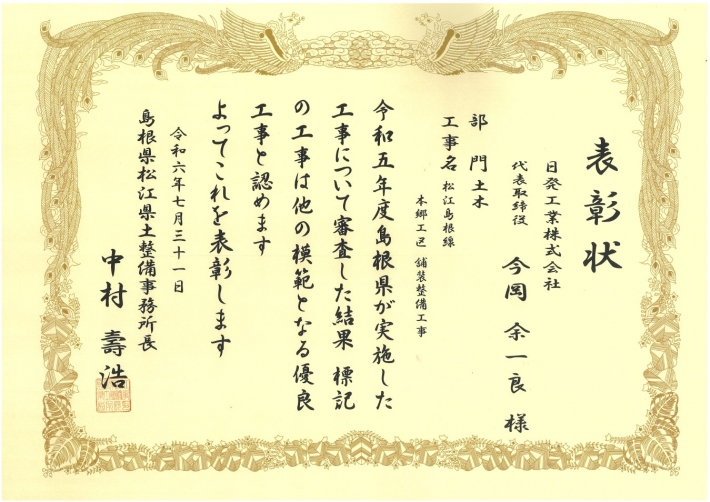 表彰状
日発工業株式会社
代表取締役 今岡 余一良 様
部門 土木
工事名 松江島根線
本郷工区 舗装整備工事
令和五年度島根県が実施した
工事について審査した結果 標記
の工事は他の模範となる優良
工事と認めます
よってこれを表彰します
令和六年七月三十一日
島根県松江県土整備事務所長
中村 壽浩